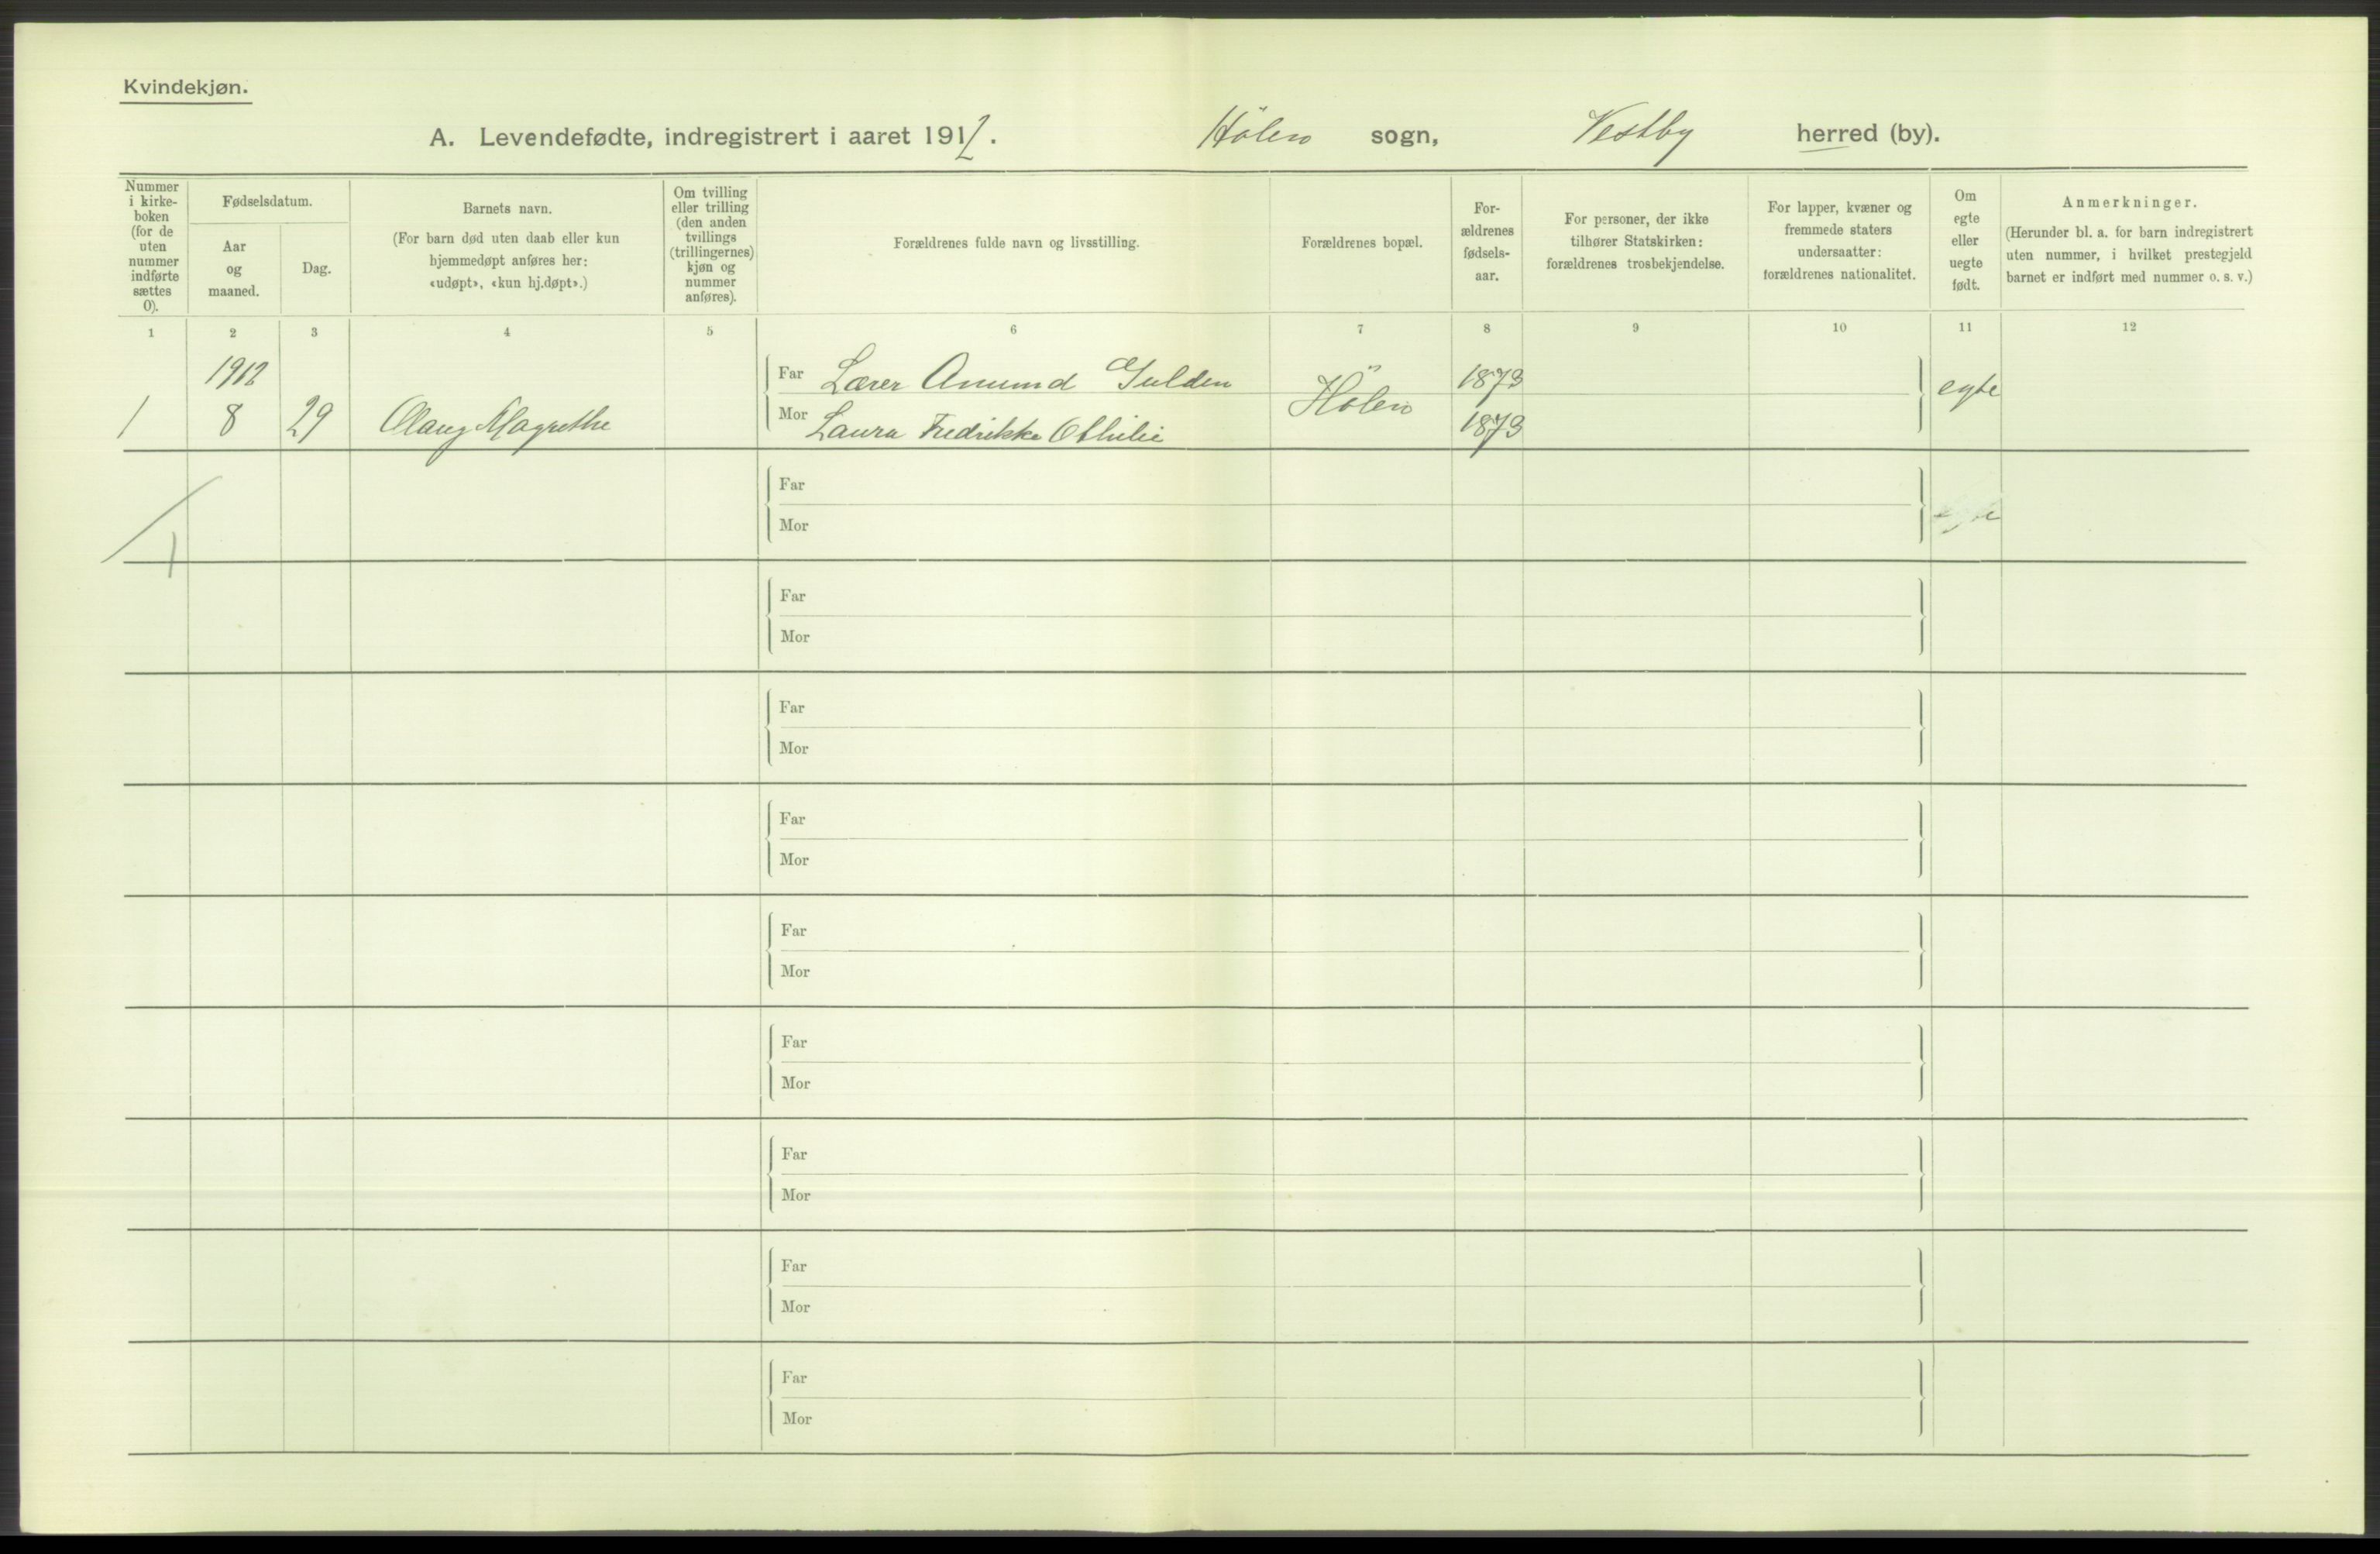 Kvindekjøn.
A. Levendefødte, indregistrert i aaret 1912. Hölen sogn, Vestby herred (by).
Nummer
i kirke-
boken
(for de
uten
nummer
indførte
sættes
0).
Fødselsdatum.
Aar
og
maaned.
Dag.
Barnets navn.
(For barn død uten daab eller kun
hjemmedøpt anføres her:
«udøpt», «kun hj.døpt».)
Om tvilling
eller trilling
(den anden
tvillings
(trillingernes)
kjøn og
nummer
anføres).
Forældrenes fulde navn og livsstilling.
Forældrenes bopæl.
For-
ældrenes
fødsels-
aar.
For personer, der ikke
tilhører Statskirken:
forældrenes trosbekjendelse.
For lapper, kvæner og
fremmede staters
undersaatter:
forældrenes nationalitet.
Om
egte
eller
uegte
født.
Anmerkninger.
(Herunder bl. a. for barn indregistrert
uten nummer, i hvilket prestegjeld
barnet er indført med nummer o. s. v.)
1 2 3 4 5 6 7 8 9 10 11 12
1912 Far Lærer Amund Gulden Hölen 1873 egte
1 8 29 Olaug Magrethe Mor Laura Fredrikke Othilie 1873
Far
Mor
1
Far
Mor
Far
Mor
Far
Mor
Far
Mor
Far
Mor
Far
Mor
Far
Mor
Far
Mor